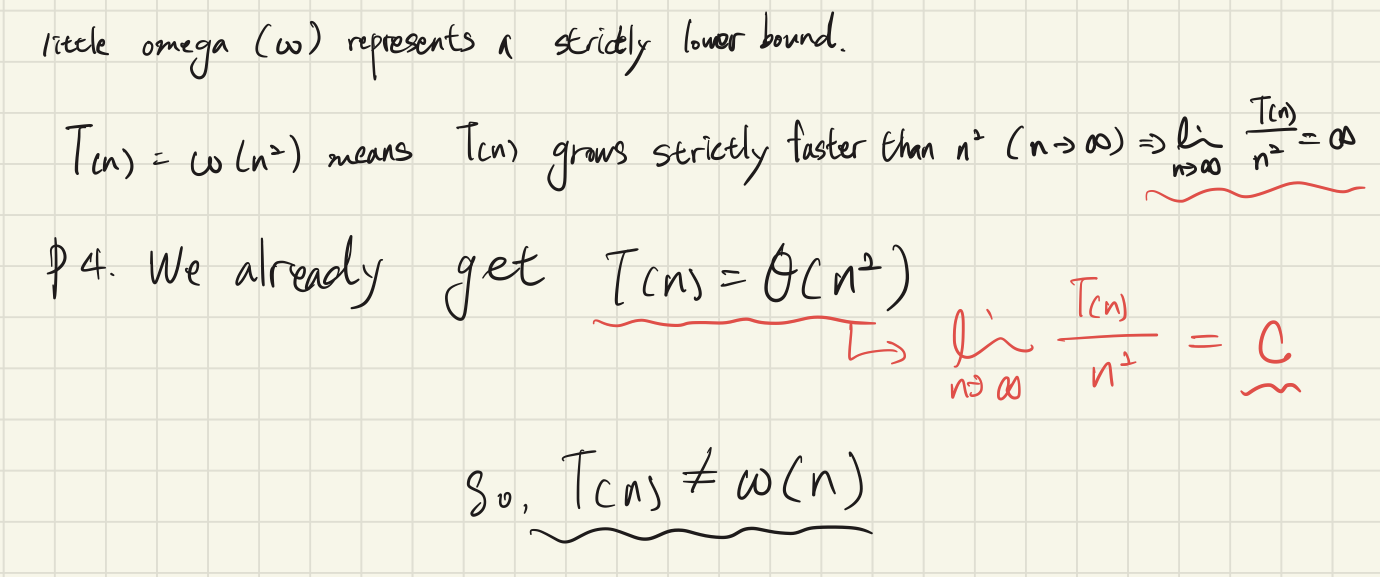 little omega (ω) represents a strictly lower bound.
T(n) = ω(n²) means T(n) grows strictly faster than n² (n→∞) ⇒ lim n→∞ T(n)/n² = ∞
P4. We already get T(n) = Θ(n²)
↳ lim n→∞ T(n)/n² = C
So, T(n) ≠ ω(n)